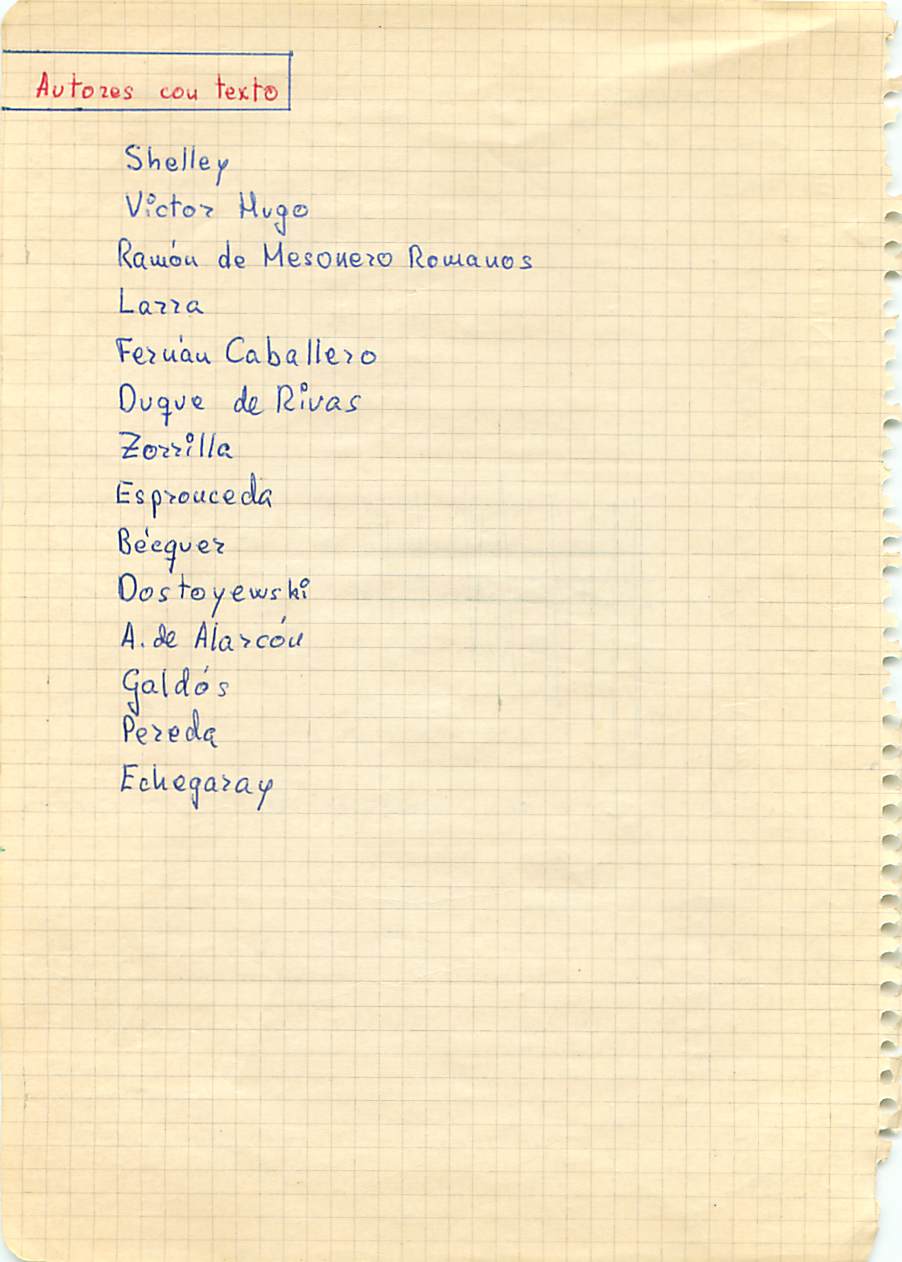 Autores con texto
Shelley
Víctor Hugo
Ramón de Mesonero Romanos
Larra
Fernán Caballero
Duque de Rivas
Zorrilla
Espronceda
Bécquer
Dostoyewski
A. de Alarcón
Galdós
Pereda
Echegaray